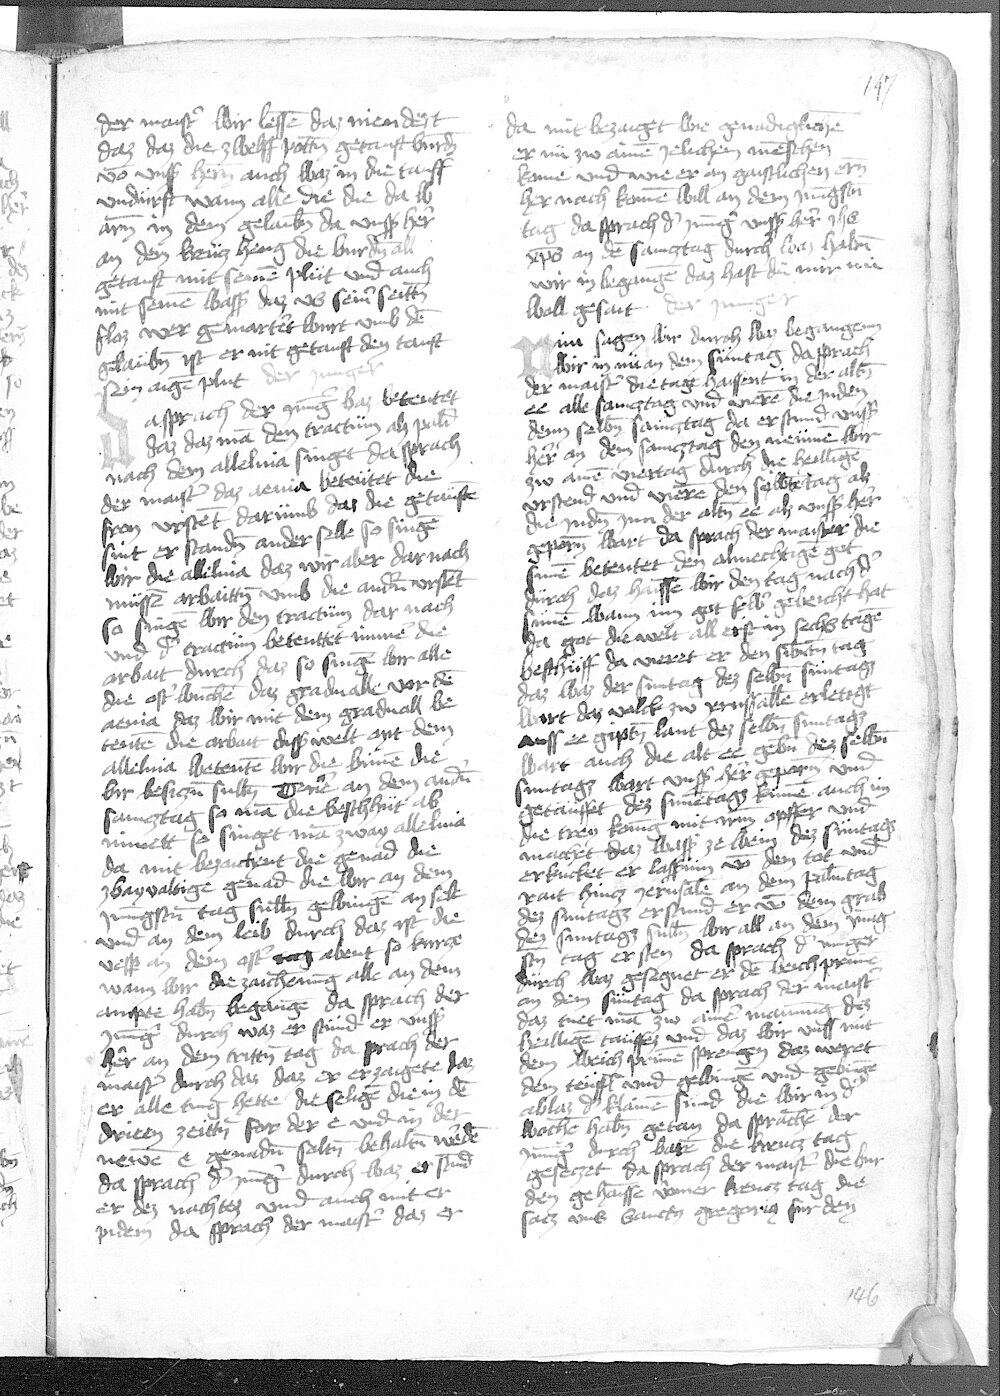 147
der maist' wir lessē daz niendert
daz daz die zwelff potn̄ getauft wurdn̄
vō vnsß hern̄ auch waz in die tauff
vndurft wann alle die die da w
arn̄ in dem gelaubn̄ da vnsß her
an dem kreücz heng die wurdn̄ all
getauft mit seinē plüt vnd auch
mit seinē wasß daz vs sein' seittn̄
flos wer gemartert wurt vmb dē
gelaubn̄ ist er nit getauft den tauft
sein aigē plut der junger
Da sprach der jung' waz betewtet
daz daz mā den tractüm als pald
nach dem alleluia singet da sprach
der maist' daz aeuia betewtet die
fron vrstēt darümb daz die getauftē
sint er standn̄ ander selle so singē
wir die alleluia daz wir aber dar nach
müssē arbaittn̄ vmb die andn̄ vrstēt
so singē wir den tractüm dar nach
vnd d' tractüm betewttet immē die
arbait durch daz so singē wir alle
die ost' wuchē daz graduale vor dē
aeuia daz wir mit dem graduall be
tewtē die arbait disß welt mit dem
alleluia betewtē wir die wunē die
wir besiczn̄ sulln̄ an dem andn̄
samcztag so mā die beschhüt ab
nimett so singet mā zway alleluia
da mit bezaichent die genad die
zwayualtige genad die wir an dem
jungstn̄ tag sulln̄ gewingē an sele
vnd an dem leib durch daz ist die
vesß an dem ost' tag abent so kurcze
wann wir die zaichenüng alle an dem
ampte habn̄ begangē da sprach der
jung' durch waz er stünd er vnsß
hēr an dem trittn̄ tag da sprach der
maist' durch daz daz er erzaigete daz
er alle die seligē die in dē
drieen zeittn̄ for der e vnd in der
newē e genadn̄ soltn̄ behaltn̄ werdē
da sprach d' jung' durch waz er stund
er dez nachtez vnd auch mit er
pidem da sprach der maist' daz er
da mit bezaiget wie genadigklichē
er nü zw ainē jelichem menschen
kome vnd wie er an gaistlichen ern̄
her nach komē will an dem jungstn̄
tag da sprach d' jung' vnsß her jhs
xp̄s an dē samcztag durch waz habn̄
wir in begangē daz hast dü mir nit
woll gesait der junger
Nun sagen wir durch waz begangenn
wir in nü an dem süntag da sprach
der maist' die tage haissent in der altn̄
ee alle samcztag vnd vierē die juden
denn selbn̄ samcztag da er stund vnsß
hēr an dem samcztag den nennē wir
zw ainē viertag durch die heilligē
vrstend vnd vierē den selbn̄ tag als
die judn̄ inn der altn̄ ee als vnsß her
geporn̄ wart da sprach der maister die
sunē betewtet den almechtige got
durch daz haissē wir den tag nach d'
sunē wann im got selb' geleicht hat
da got die welt all erst in sechs tagē
beschüff da vieret er den sibtn̄ tag
daz waz der suntag dez selbn̄ süntagz
wart daz valck zw yrusallē erledigt
auss ee giptn̄ lant dez selbn̄ suntagz
wart auch die alt ee gebn̄ dez selbn̄
suntagz wart vnsß her geporn̄ vnd
getauffet dez sunētagz kumē auch im
die trey konig mit irm opffer vnd
machet daz wasß ze wein dez süntagz
erkucket er lassrūm vō dem tot vnd
rait hincz jerusalē an dem palmtag
dez suntagz erstund er vō dem grab
dez suntagz sulln̄ wir all an dem jung
stn̄ tag er sten da sprach d' junger
durch waz gesegnet er dē weich prunē
an dem süntag da sprach der maist'
daz tuet mā zw ainer manung dez
heilligē tauffez vnd daz wir vnß mit
dem weich prunē sprengen daz weret
dem teüffl vnd gewingē vnd gebingē
ablaz d' klainē sünd die wir in d'
wochē habn̄ getan da sprachē der
jung' durch warē die kreucz tag
gesetzet da sprach der maist' die wur
den gehaissē vmer kreucz tag die
sacz vns sanctn̄ gregoriq für den
146